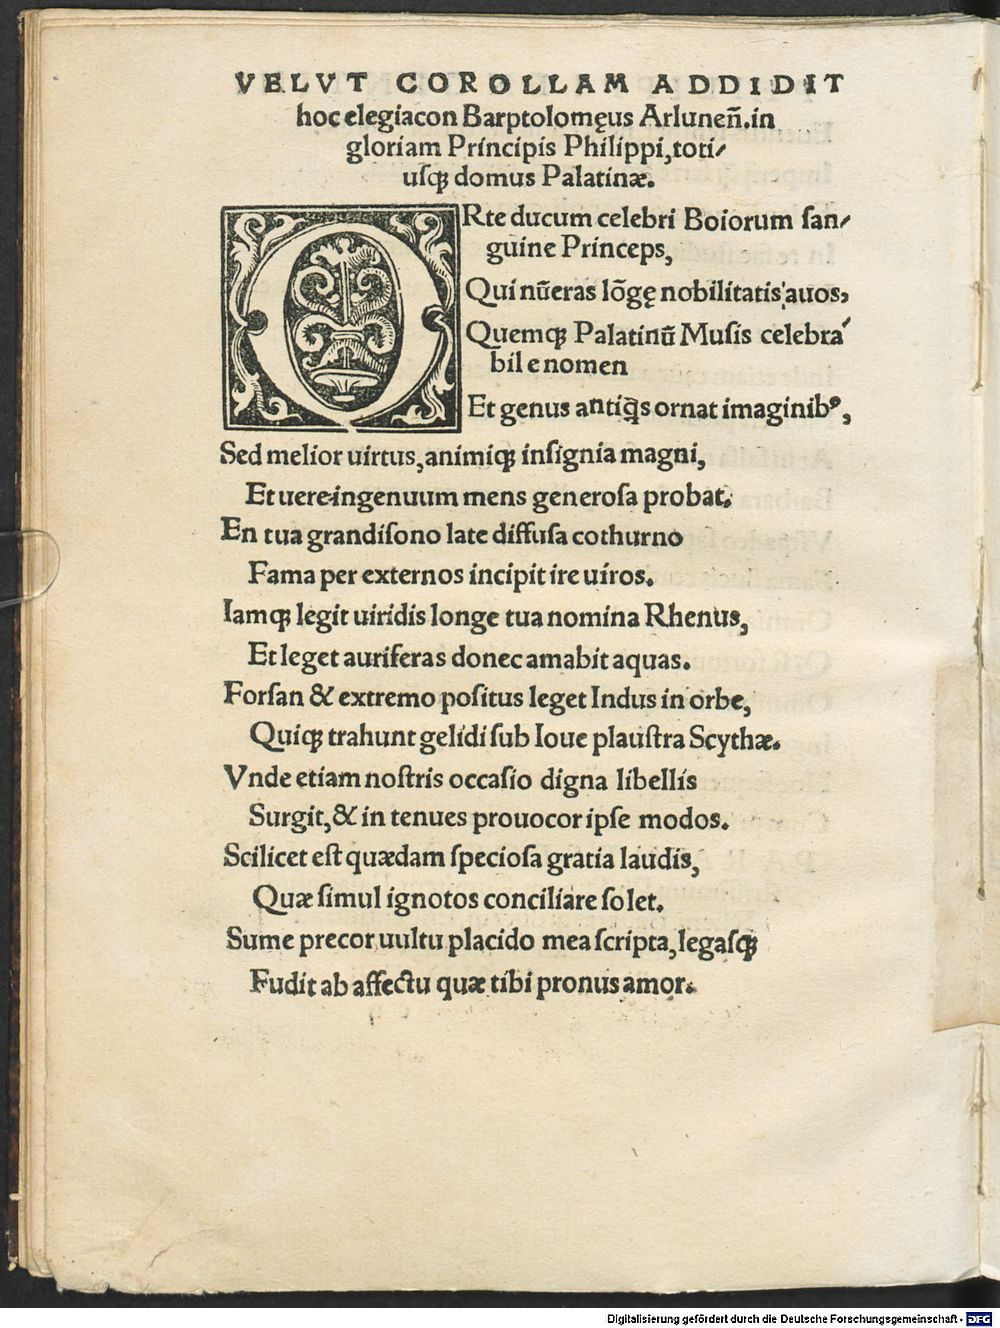 VELVT COROLLAM ADDIDIT
hoc elegiacon Barptolomęus Arluneñ.in
gloriam Principis Philippi,toti/
uſqꝫ domus Palatinæ.
ORte ducum celebri Boiorum ſan/
guine Princeps,
Qui nūeras lõgę nobilitatis auos,
Quemqꝫ Palatinū Muſis celebra
bile nomen
Et genus antiq̃s ornat imaginibꝰ,
Sed melior uirtus,animiqꝫ inſignia magni,
Et uere ingenuum mens generoſa probat.
En tua grandiſono late diffuſa cothurno
Fama per externos incipit ire uiros.
Iamqꝫ legit uiridis longe tua nomina Rhenus,
Et leget auriferas donec amabit aquas.
Forſan & extremo poſitus leget Indus in orbe,
Quiqꝫ trahunt gelidi ſub Ioue plauſtra Scythæ.
Vnde etiam noſtris occaſio digna libellis
Surgit,& in tenues prouocor ipſe modos.
Scilicet eſt quædam ſpecioſa gratia laudis,
Quæ ſimul ignotos conciliare ſolet.
Sume precor uultu placido mea ſcripta,legaſqꝫ
Fudit ab affectu quæ tibi pronus amor.
Digitalisierung gefördert durch die Deutsche Forschungsgemeinschaft - DFG